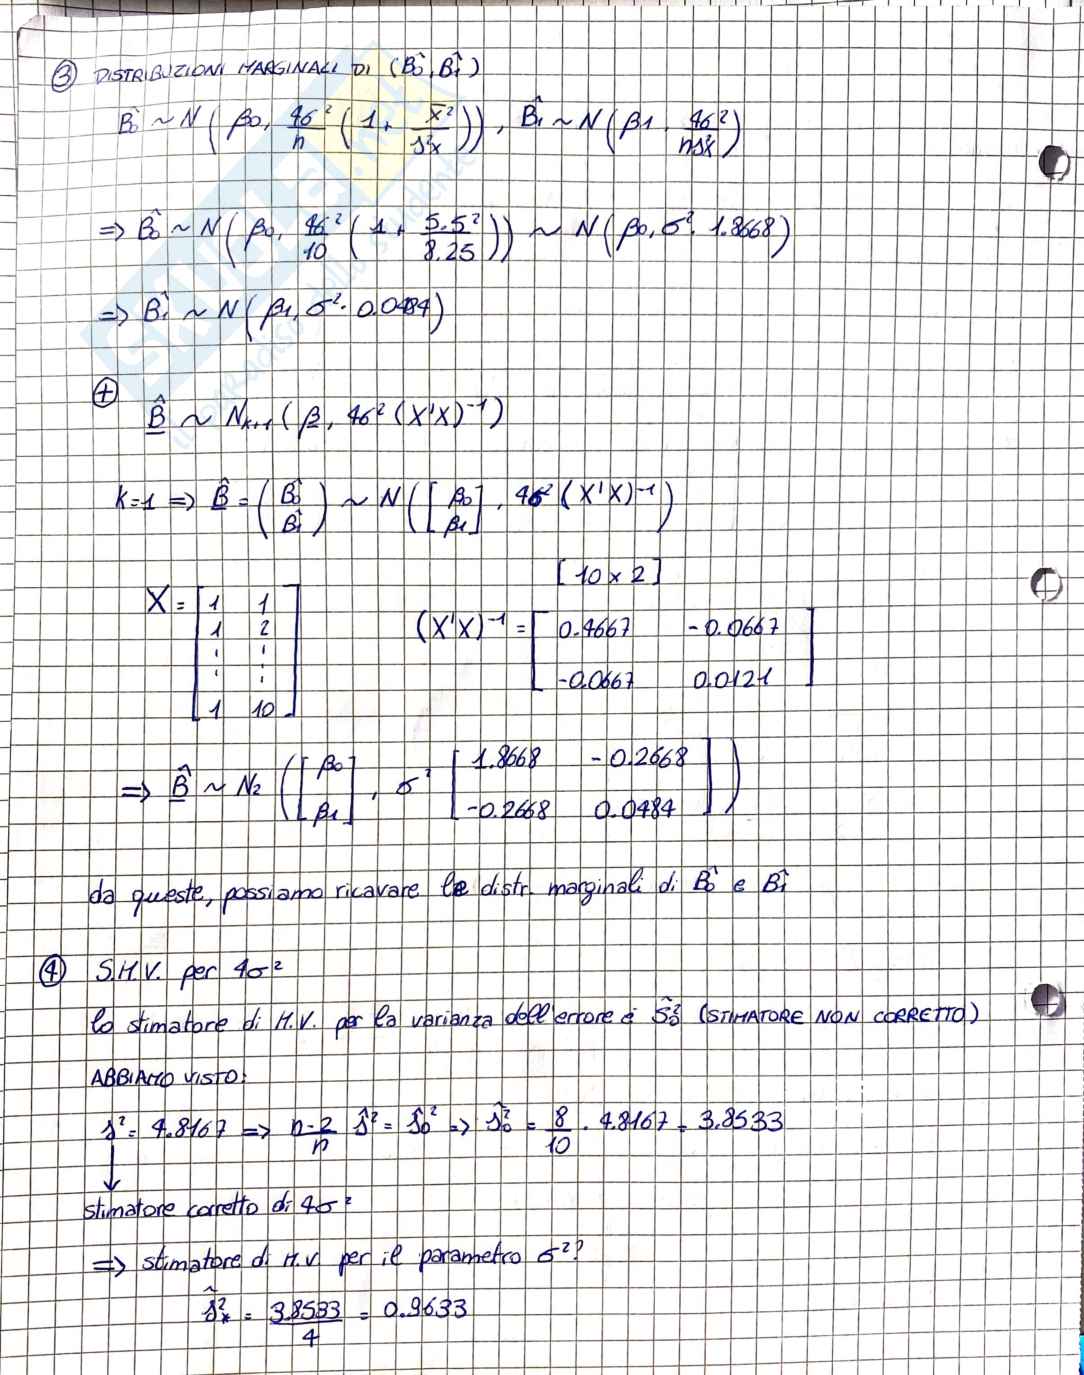 ③ DISTRIBUZIONI MARGINALI DI (B̂0, B̂1)
B̂0 ~ N(β0, 4σ²/n (1 + x̄²/s²x)), B̂1 ~ N(β1, 4σ²/ns²x)
=> B̂0 ~ N(β0, 4σ²/10 (1 + 5.5²/8.25)) ~ N(β0, σ² · 1.8668)
=> B̂1 ~ N(β1, σ² · 0.0484)
⊕
B̂ ~ Nk+1(β, 4σ² (X'X)⁻¹)
K=1 => B̂ = (B̂0 B̂1) ~ N([β0 β1], 4σ² (X'X)⁻¹)
[10 x 2]
X = [1 1
1 2
⋮ ⋮
1 10]
(X'X)⁻¹ = [0.4667 -0.0667
-0.0667 0.0121]
=> B̂ ~ N2([β0 β1], σ² [1.8668 -0.2668
-0.2668 0.0484])
da queste, possiamo ricavare le distr. marginali di B̂0 e B̂1
④ S.M.V. per 4σ²
lo stimatore di M.V. per la varianza dell'errore è Ŝ²0 (STIMATORE NON CORRETTO)
ABBIAMO VISTO:
ŝ² = 4.8167 => n-2/n ŝ² = ŝ0² => ŝ²0 = 8/10 · 4.8167 = 3.8533
↓
stimatore corretto di 4σ²
=> stimatore di M.V. per il parametro σ²?
ŝ²* = 3.8533/4 = 0.9633